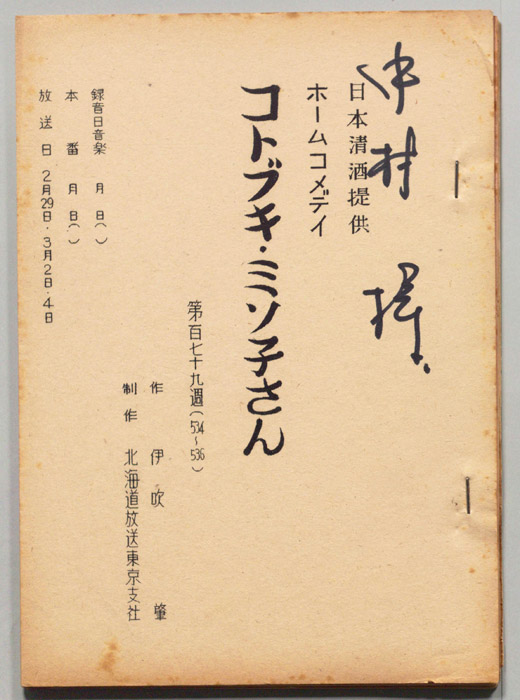 中村 様
日本清酒提供
ホームコメデイ
コトブキ・ミソ子さん
第百七十九週(534~536)
作 伊吹 肇
制作 北海道放送東京支社
録音日音楽 月 日( )
本番 月 日( )
放送日 2月29日・3月2日・4日